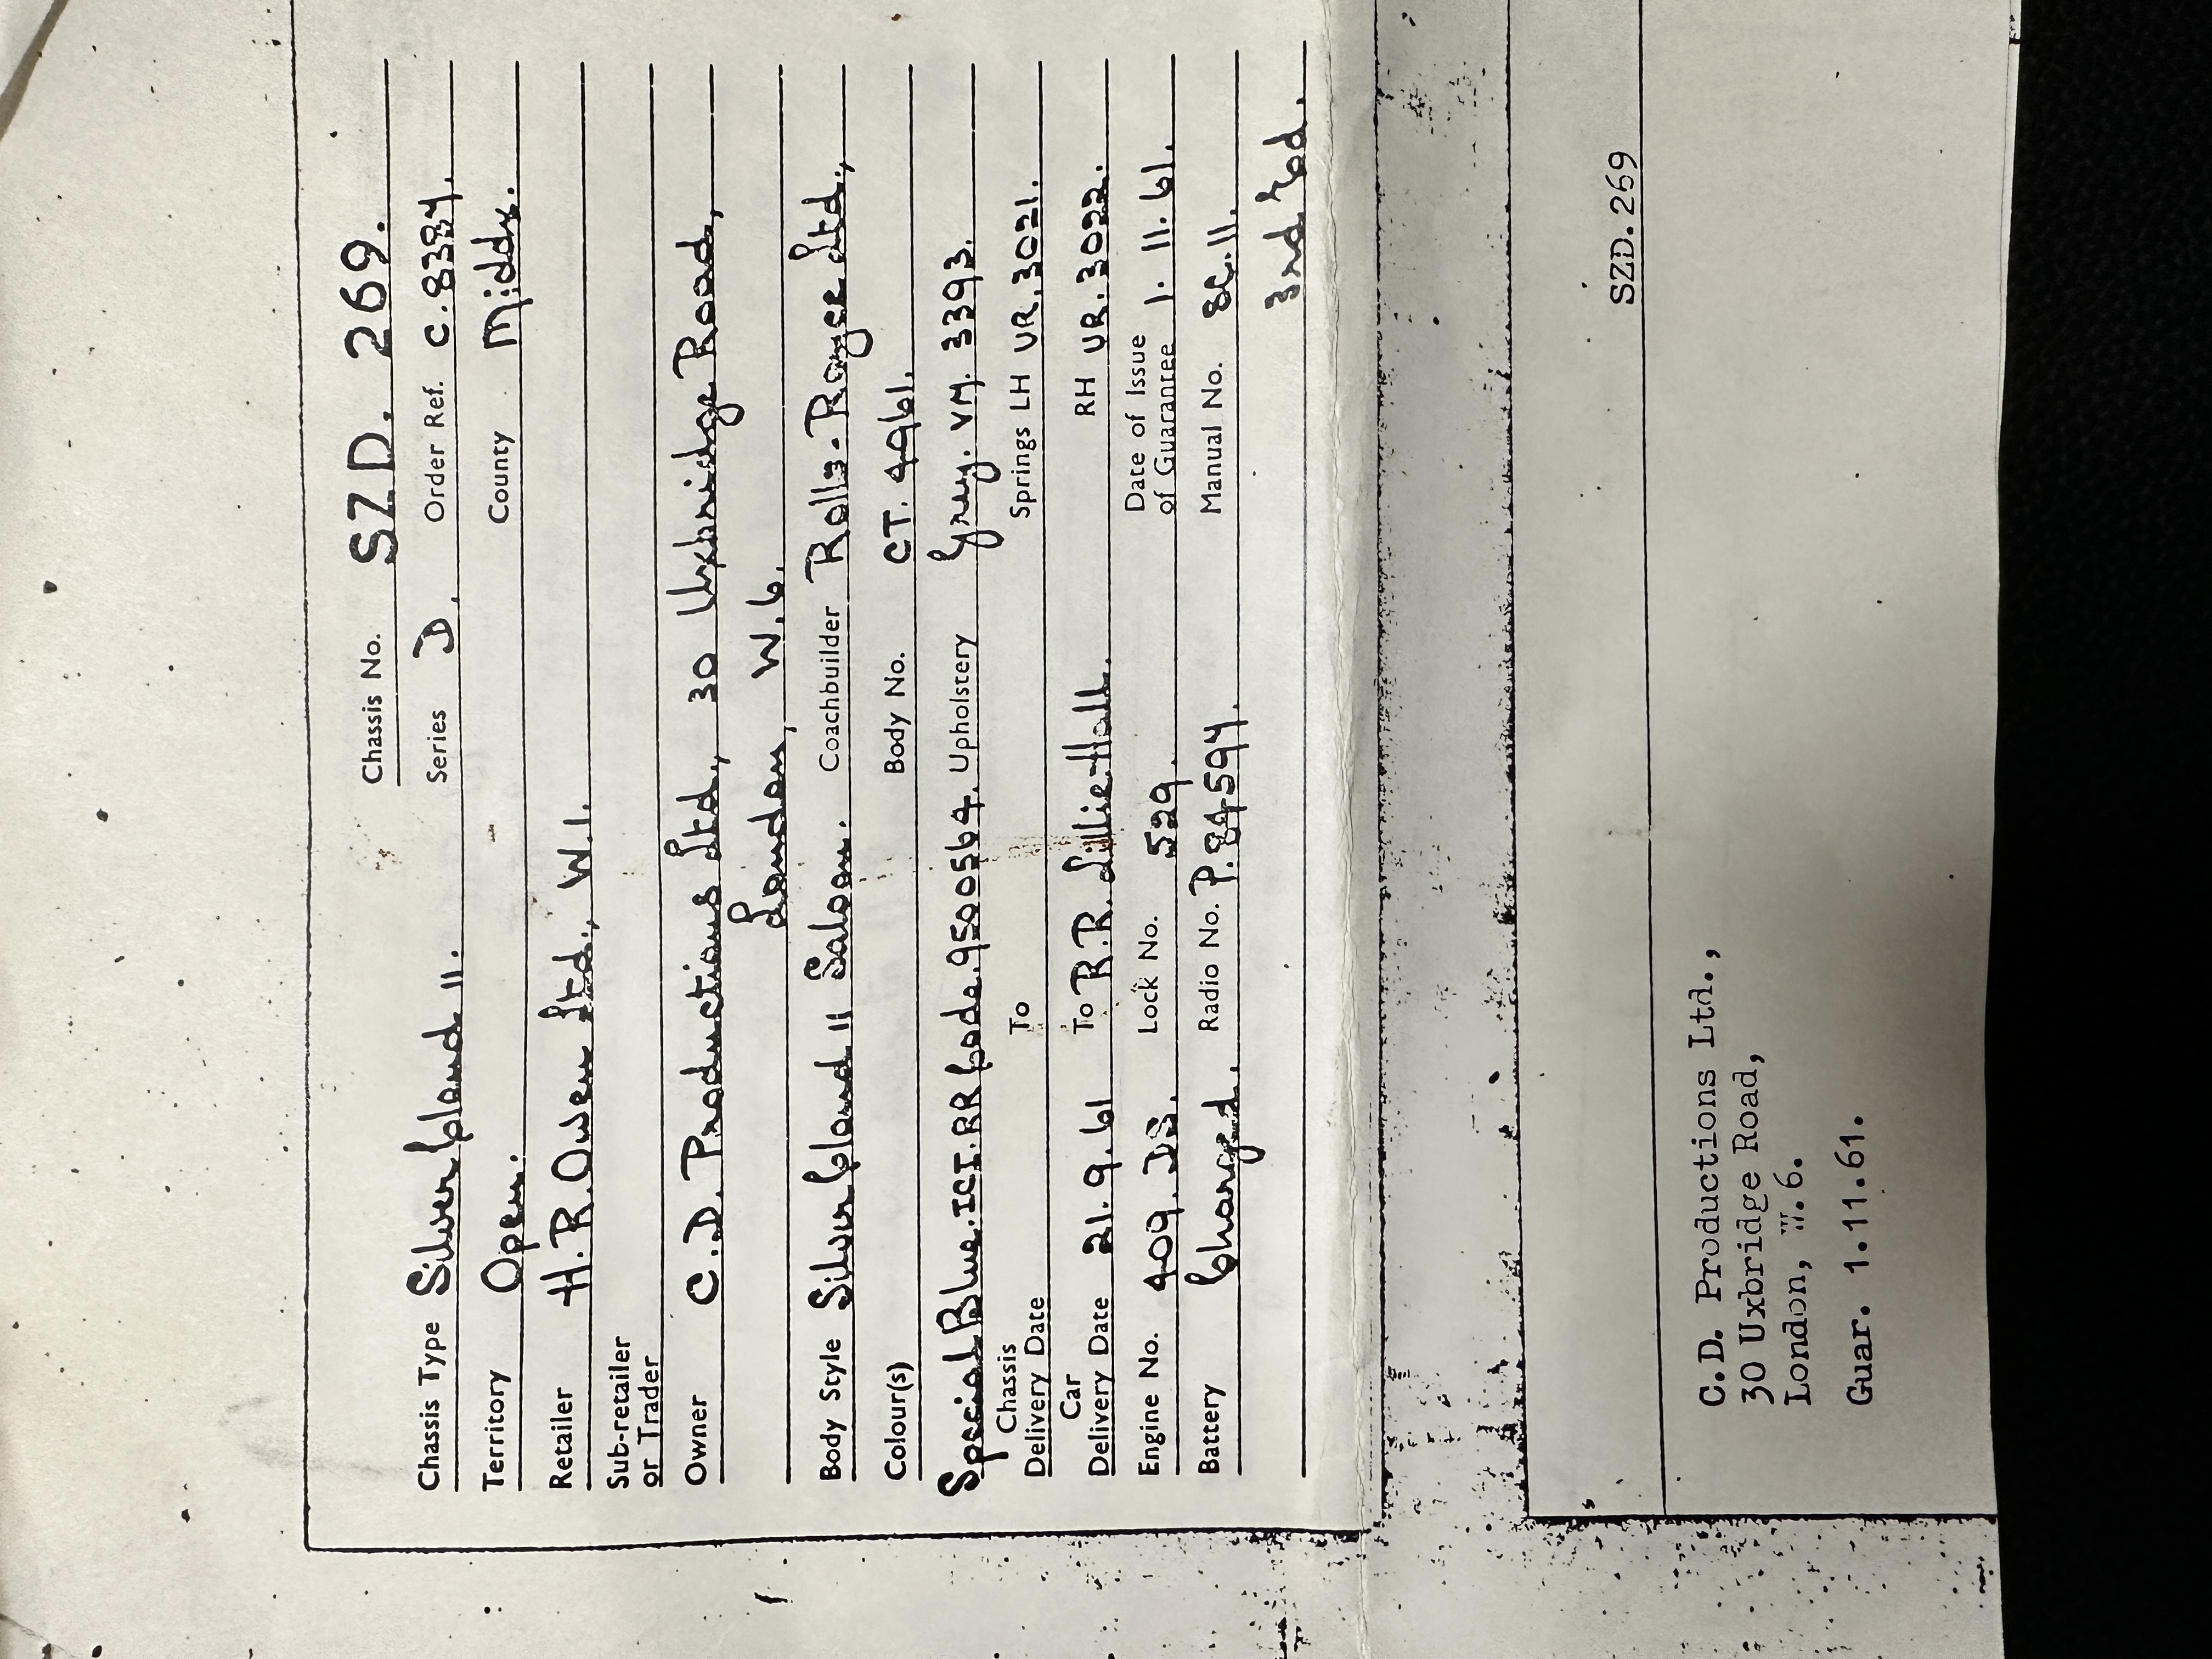 Chassis No. SZD. 269.
Chassis Type Silver Cloud II. Series D. Order Ref. C.8384.
Territory Open. County Middx.
Retailer H.R. Owen Ltd., W.1.
Sub-retailer
or Trader
Owner C.D. Productions Ltd., 30 Uxbridge Road,
London, W.6.
Body Style Silver Cloud II Saloon. Coachbuilder Rolls-Royce Ltd.,
Colour(s) Body No. CT. 4961.
Special Blue. ICI. RR Code. 9500564. Upholstery Grey. VM. 3393.
Chassis
Delivery Date To Springs LH UR. 3021.
Car
Delivery Date 21.9.61 To R.R. Lillie Hall. RH UR. 3022.
Engine No. 409. DS. Lock No. 529. Date of Issue
of Guarantee 1.11.61.
Battery Charged. Radio No. P.84594. Manual No. SC.11.
3rd
SZD.269
C.D. Productions Ltd.,
30 Uxbridge Road,
London, W.6.
Guar. 1.11.61.